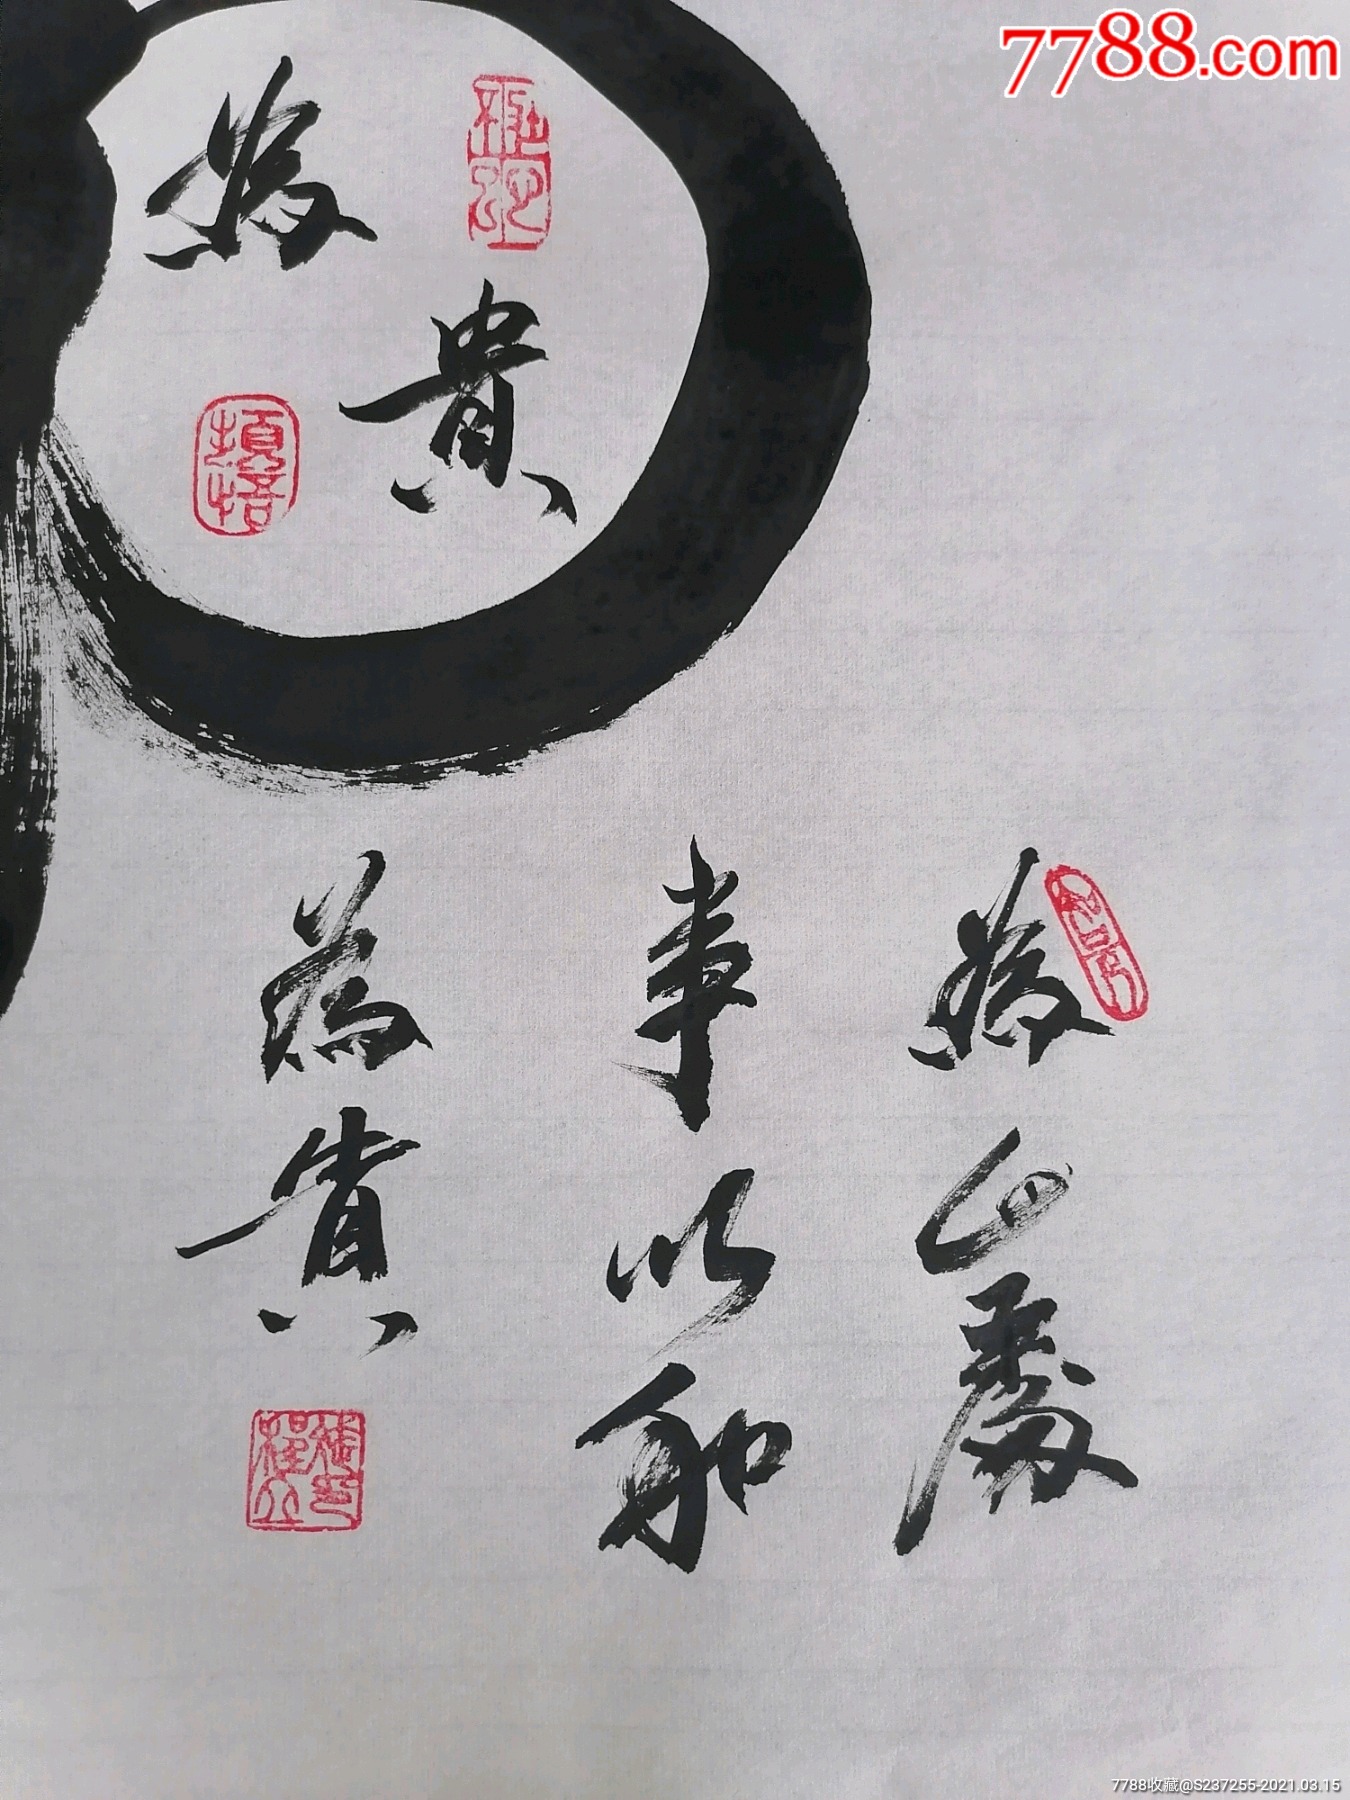 7788.com
為
貴
為人處
事以和
為貴
7788收藏@S237255-2021.03.15